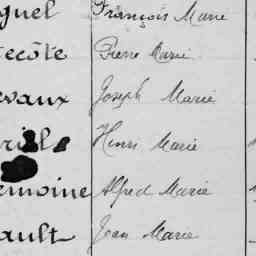 guel François Marie
ecôte Pierre Marie
evaux Joseph Marie
Henri Marie
emoine Alfred Marie
ault Jean Marie